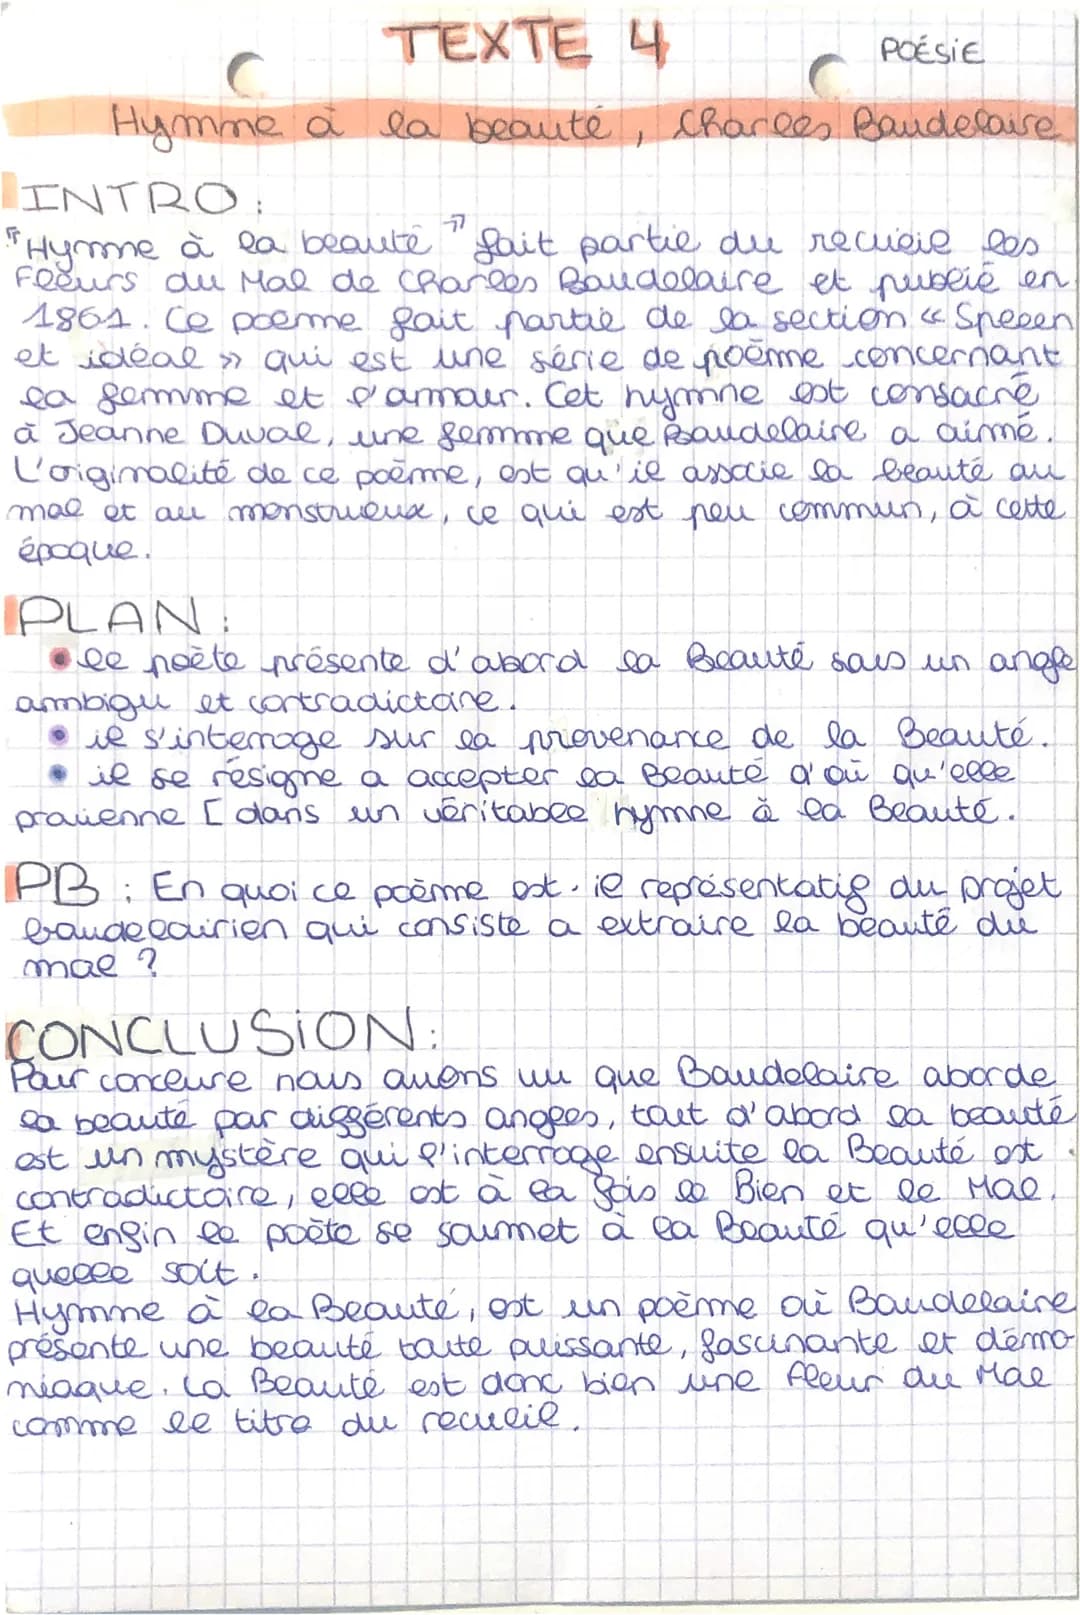 TEXTE 4
POÉSIE
Hymne à la beauté, Charles Baudelaire
INTRO:
"Hymne à la beauté" fait partie du recueil les
Fleurs du Mal de Charles Baudelaire et publié en
1861. Ce poeme fait partie de la section « Spleen
et idéal » qui est une série de poème concernant
la femme et l'amour. Cet hymne est consacré
à Jeanne Duval, une femme que Baudelaire a aimé.
L'originalité de ce poème, est qu'il associe la beauté au
mal et au monstrueux, ce qui est peu commun, à cette
époque.
PLAN:
• le poète présente d'abord la Beauté sous un angle
ambigu et contradictoire.
• il s'interroge sur la provenance de la Beauté.
• il se résigne a accepter la Beauté d'où qu'elle
provienne [dans un véritable hymne à la Beauté.
PB: En quoi ce poème est-il représentatif du projet
baudelairien qui consiste a extraire la beauté du
mal ?
CONCLUSION:
Pour conclure nous avons vu que Baudelaire aborde
la beauté par différents angles, tout d'abord la beauté
est un mystère qui l'interroge ensuite la Beauté est
contradictoire, elle est à la fois le Bien et le Mal.
Et enfin le poète se soumet à la Beauté qu'elle
quelle soit.
Hymne à la Beauté, est un poème où Baudelaire
présente une beauté toute puissante, fascinante et démo-
niaque. La Beauté est donc bien une fleur du Mal
comme le titre du recueil.